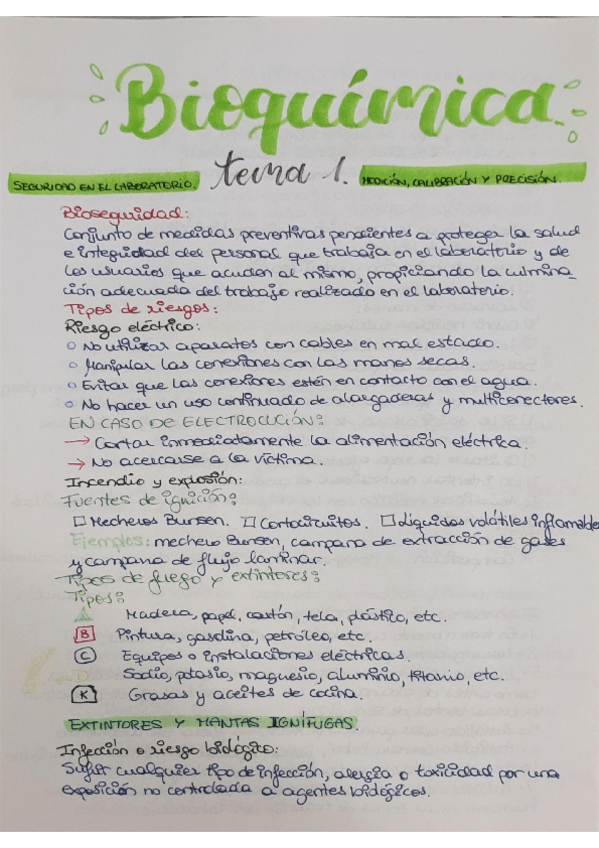 Bioquímica
SEGURIDAD EN EL LABORATORIO. tema 1. MEDICIÓN, CALIBRACIÓN Y PRECISIÓN.
Bioseguridad:
Conjunto de medidas preventivas pendientes a proteger la salud
e integridad del personal que trabaja en el laboratorio y de
los usuarios que acuden al mismo, propiciando la culmina
ción adecuada del trabajo realizado en el laboratorio.
Tipos de riesgos:
Riesgo eléctrico:
No utilizar aparatos con cables en mal estado.
Manipular las conexiones con las manos secas.
Evitar que las conexiones estén en contacto con el agua.
No hacer un uso continuado de alargaderas y multiconectores.
EN CASO DE ELECTROCUCIÓN:
→ Cortar inmediatamente la alimentación eléctrica.
→ No acercarse a la víctima.
Incendio y explosión:
Fuentes de ignición:
Mecheros Bunsen. Cortocircuitos. Líquidos volátiles inflamables
Ejemplos: mechero Bunsen, campana de extracción de gases
y campana de flujo laminar.
Tipos de fuego y extintores:
Tipos:
A Madera, papel, cartón, tela, plástico, etc.
B Pintura, gasolina, petróleo, etc.
C Equipos o instalaciones eléctricas.
Sodio, potasio, magnesio, aluminio, titanio, etc.
K Grasas y aceites de cocina.
EXTINTORES Y MANTAS IGNÍFUGAS.
Infección o riesgo biológico:
Sufrir cualquier tipo de infección, alergia o toxicidad por una
exposición no controlada a agentes biológicos.